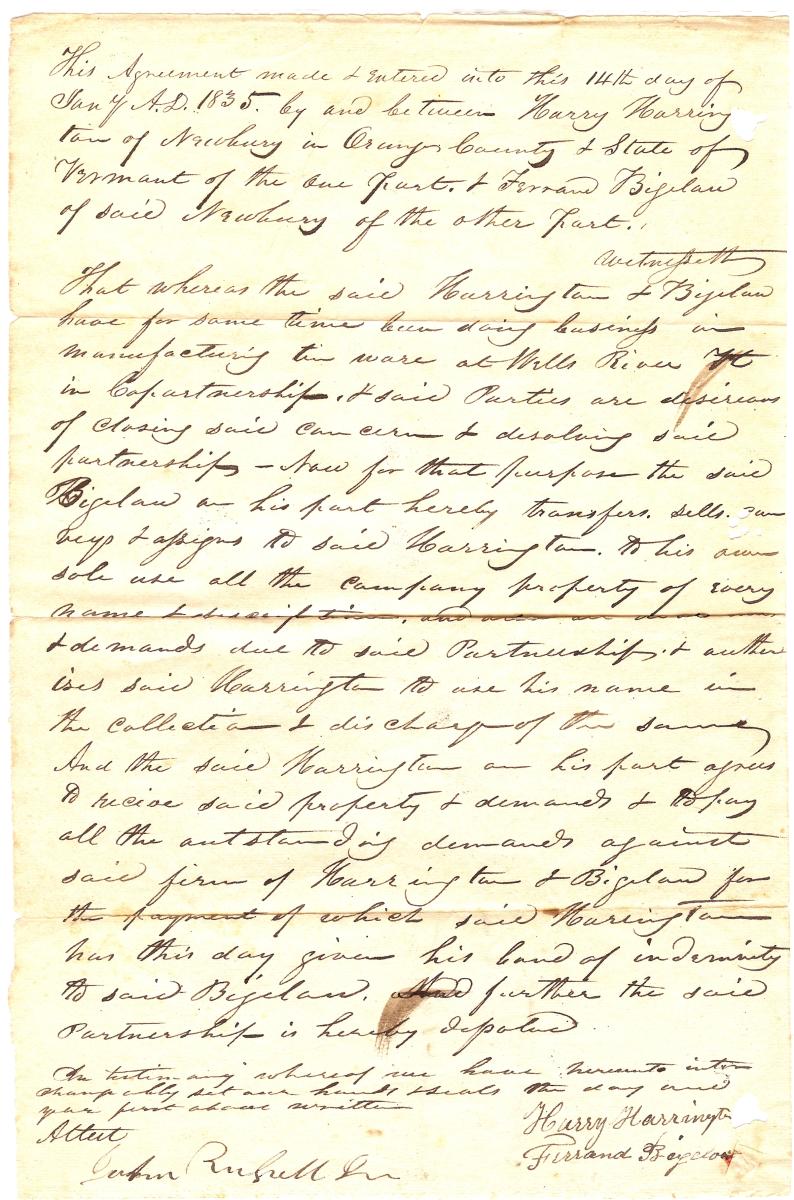 This Agreement made & entered into this 14th day of
Jany A.D. 1835. by and between Harry Harring
ton of Newbury in Orange County & State of
Vermont of the one Part. & Ferrand Bigelow
of said Newbury of the other Part.
Witnesseth
That whereas the said Harrington & Bigelow
have for some time been doing business in
manufacturing tin ware at Wells River Vt
in Copartnership. & said Parties are desireous
of closing said concern & desolving said
partnership – Now for that purpose the said
Bigelow on his part hereby transfers. sells. con
veys & assigns to said Harrington. to his own
sole use all the company property of every
name & discription. and
& demands due to said Partnership. & author
ises said Harrington to use his name in
the collection & discharge of the same
And the said Harrington on his part agrees
to recieve said property & demands & to pay
all the outstanding demands against
said firm of Harrington & Bigelow for
the payment of which said Harrington
has this day given his bond of indemnity
to said Bigelow. And further the said
Partnership is hereby desolved
In testimony whereof we have hereunto inter
changably set our hands & seals the day and
year first above written
Harry Harrington
Attest
Ferrand Bigelow
John Russell Jr